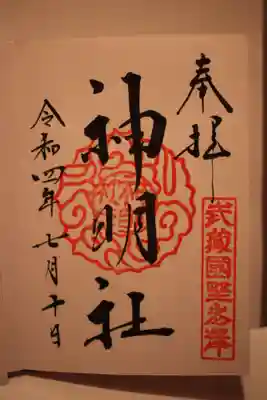 奉拝
武蔵國野火止
神明社
令和四年七月十日